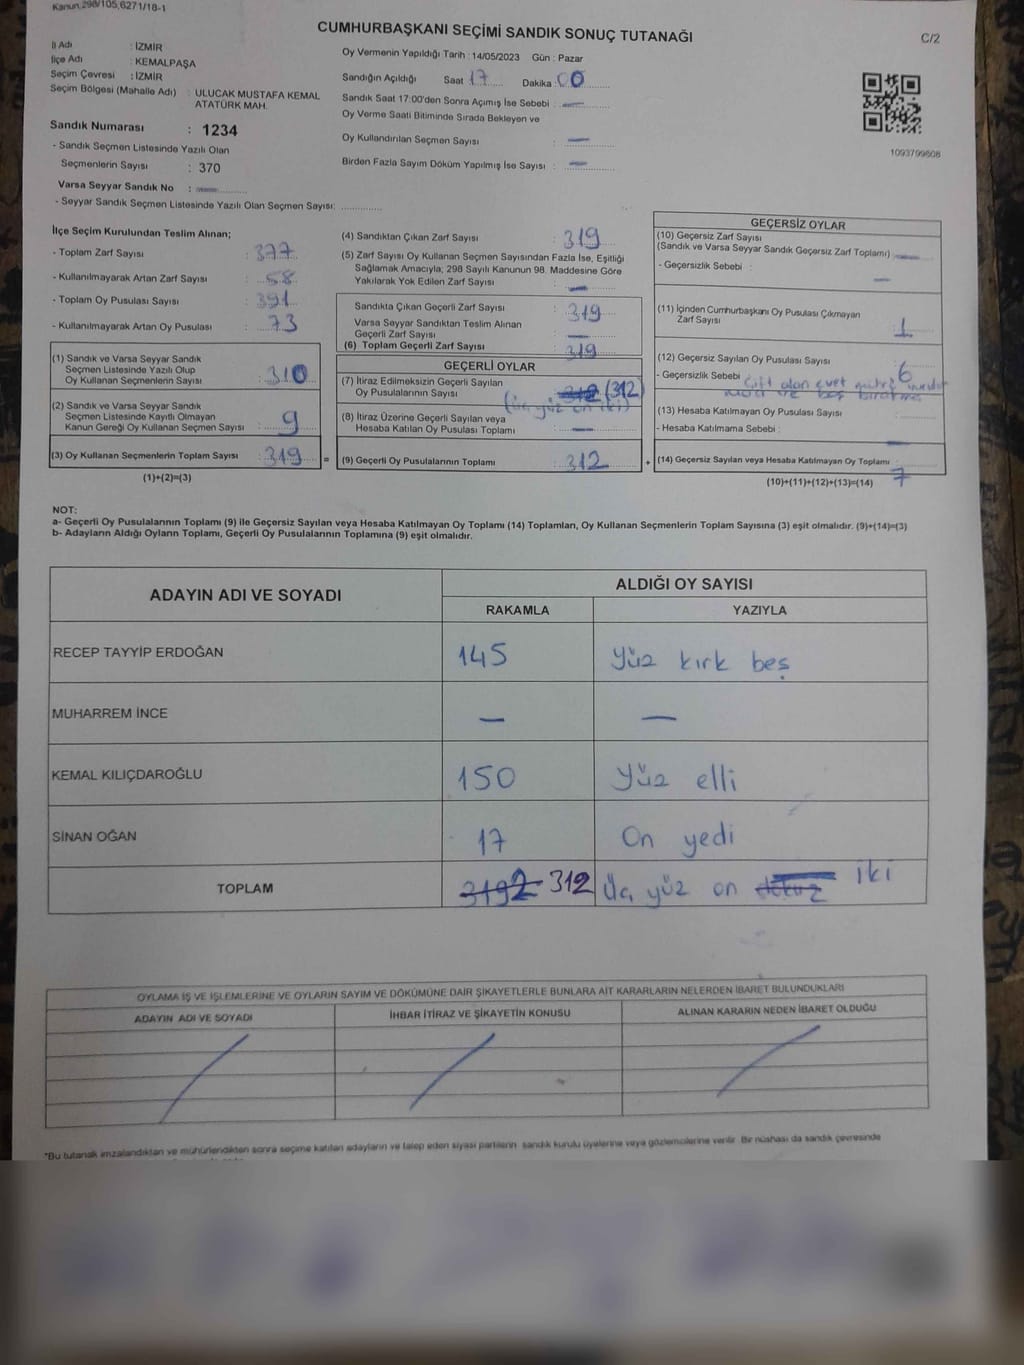 Kanun,298/105,6271/18-1
CUMHURBAŞKANI SEÇİMİ SANDIK SONUÇ TUTANAĞI
C/2
İl Adı : İZMİR
İlçe Adı : KEMALPAŞA
Seçim Çevresi : İZMİR
Seçim Bölgesi (Mahalle Adı) : ULUCAK MUSTAFA KEMAL
ATATÜRK MAH.
Sandık Numarası : 1234
- Sandık Seçmen Listesinde Yazılı Olan
Seçmenlerin Sayısı : 370
Varsa Seyyar Sandık No : —
- Seyyar Sandık Seçmen Listesinde Yazılı Olan Seçmen Sayısı:
Oy Vermenin Yapıldığı Tarih : 14/05/2023 Gün : Pazar
Sandığın Açıldığı Saat 17 Dakika : 00
Sandık Saat 17:00'den Sonra Açımış İse Sebebi : —
Oy Verme Saati Bitiminde Sırada Bekleyen ve
Oy Kullandırılan Seçmen Sayısı —
Birden Fazla Sayım Döküm Yapılmış İse Sayısı : —
1093799808
İlçe Seçim Kurulundan Teslim Alınan;
- Toplam Zarf Sayısı : 377
- Kullanılmayarak Artan Zarf Sayısı : 58
- Toplam Oy Pusulası Sayısı : 391
- Kullanılmayarak Artan Oy Pusulası : 73
(1) Sandık ve Varsa Seyyar Sandık
Seçmen Listesinde Yazılı Olup
Oy Kullanan Seçmenlerin Sayısı : 310
(2) Sandık ve Varsa Seyyar Sandık
Seçmen Listesinde Kayıtlı Olmayan
Kanun Gereği Oy Kullanan Seçmen Sayısı : 9
(3) Oy Kullanan Seçmenlerin Toplam Sayısı : 319
(1)+(2)=(3)
=
(4) Sandıktan Çıkan Zarf Sayısı : 319
(5) Zarf Sayısı Oy Kullanan Seçmen Sayısından Fazla İse, Eşitliği
Sağlamak Amacıyla; 298 Sayılı Kanunun 98. Maddesine Göre
Yakılarak Yok Edilen Zarf Sayısı : —
Sandıkta Çıkan Geçerli Zarf Sayısı : 319
Varsa Seyyar Sandıktan Teslim Alınan
Geçerli Zarf Sayısı : —
(6) Toplam Geçerli Zarf Sayısı : 319
GEÇERLİ OYLAR
(7) İtiraz Edilmeksizin Geçerli Sayılan
Oy Pusulalarının Sayısı 312 (312)
(üç yüz on iki)
(8) İtiraz Üzerine Geçerli Sayılan veya
Hesaba Katılan Oy Pusulası Toplamı : —
(9) Geçerli Oy Pusulalarının Toplamı : 312
+
GEÇERSİZ OYLAR
(10) Geçersiz Zarf Sayısı
(Sandık ve Varsa Seyyar Sandık Geçersiz Zarf Toplamı) —
- Geçersizlik Sebebi : —
(11) İçinden Cumhurbaşkanı Oy Pusulası Çıkmayan
Zarf Sayısı : 1
(12) Geçersiz Sayılan Oy Pusulası Sayısı : 6
- Geçersizlik Sebebi : çift olan evet
(13) Hesaba Katılmayan Oy Pusulası Sayısı :
- Hesaba Katılmama Sebebi : —
(14) Geçersiz Sayılan veya Hesaba Katılmayan Oy Toplamı : 7
(10)+(11)+(12)+(13)=(14)
NOT:
a- Geçerli Oy Pusulalarının Toplamı (9) ile Geçersiz Sayılan veya Hesaba Katılmayan Oy Toplamı (14) Toplamları, Oy Kullanan Seçmenlerin Toplam Sayısına (3) eşit olmalıdır. (9)+(14)=(3)
b- Adayların Aldığı Oyların Toplamı, Geçerli Oy Pusulalarının Toplamına (9) eşit olmalıdır.
ADAYIN ADI VE SOYADI
ALDIĞI OY SAYISI
RAKAMLA YAZIYLA
RECEP TAYYİP ERDOĞAN 145 Yüz kırk beş
MUHARREM İNCE — —
KEMAL KILIÇDAROĞLU 150 Yüz elli
SİNAN OĞAN 17 On yedi
TOPLAM 3192 312 Üç yüz on dokuz iki
OYLAMA İŞ VE İŞLEMLERİNE VE OYLARIN SAYIM VE DÖKÜMÜNE DAİR ŞİKAYETLERLE BUNLARA AİT KARARLARIN NELERDEN İBARET BULUNDUKLARI
ADAYIN ADI VE SOYADI İHBAR İTİRAZ VE ŞİKAYETİN KONUSU ALINAN KARARIN NEDEN İBARET OLDUĞU
*Bu tutanak imzalandıktan ve mühürlendikten sonra seçime katılan adayların ve talep eden siyasi partilerin sandık kurulu üyelerine veya gözlemcilerine verilir. Bir nüshası da sandık çevresinde